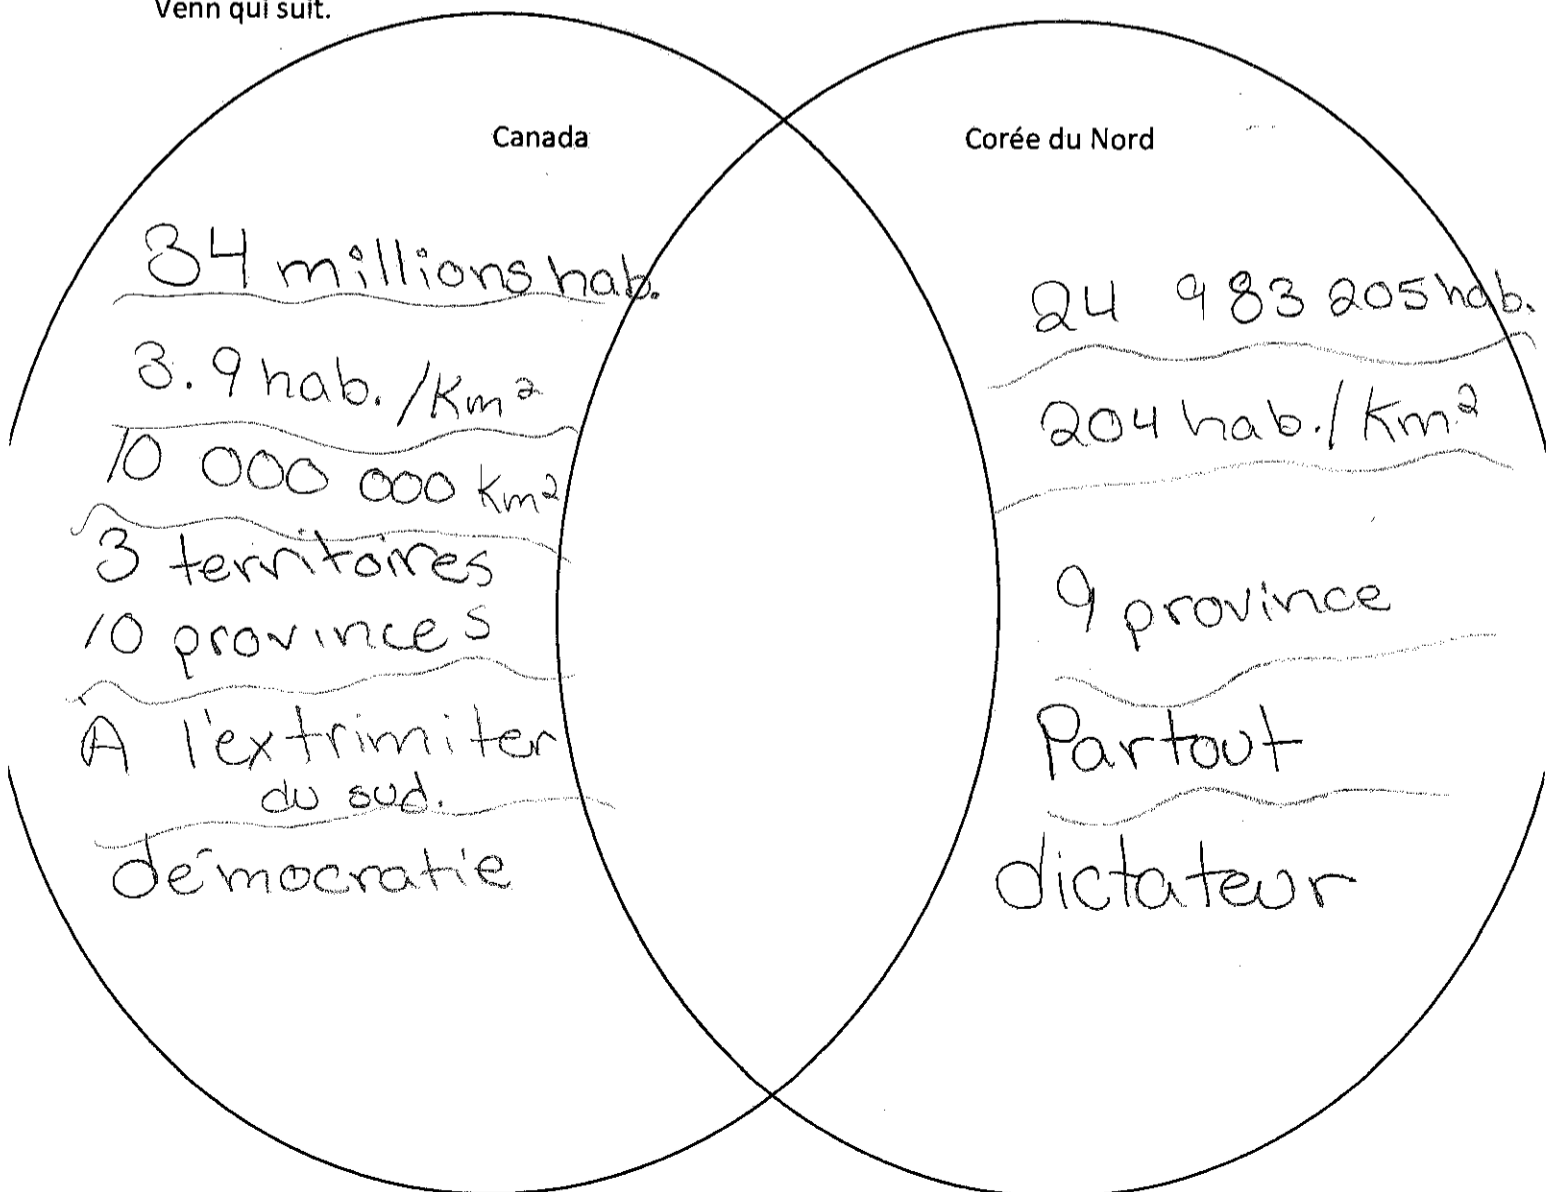 Venn qui suit.
Canada
34 millions hab.
3.9 hab./Km²
10 000 000 km²
3 territoires
10 provinces
À l'extrimiter
du sud.
démocratie
Corée du Nord
24 983 205 hab.
204 hab./Km²
9 province
Partout
dictateur